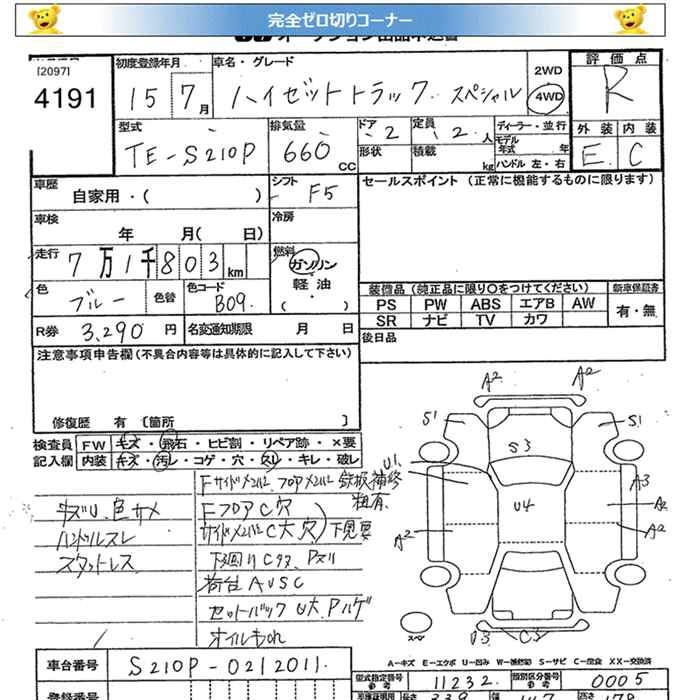 完全ゼロ切りコーナー
[2097]
4191
初度登録年月
15 7月
車名・グレード
ハイゼットトラック スペシャル
2WD
4WD
評価点
R
外装 内装
E C
型式
TE-S210P
排気量
660 CC
ドア 2
定員 2人
形状
積載 kg
ディーラー・並行
モデル年式 年
ハンドル 左・右
車歴
自家用・( )
シフト F5
セールスポイント (正常に機能するものに限ります)
車検
年 月( 日)
冷房
走行
7万1千803km
燃料
ガソリン
軽油
( ・ )
色
ブルー
色替
色コード
B09.
装備品 (純正品に限り〇をつけてください)
新車保証書
PS PW ABS エアB AW
有・無
SR ナビ TV カワ
R券 3,290円
名変通知期限 月 日
後日品
注意事項申告欄 (不具合内容等は具体的に記入して下さい)
修復歴 有 〔箇所 〕
検査員記入欄
FW キズ・飛石・ヒビ割・リペア跡・×要
内装 キズ・汚レ・コゲ・穴・スレ・キレ・破レ
キズU.色サメ
ハンドルスレ
スタットレス
Fサイドメンバ,フロアメンバ 鉄板補修粗有
FフロアC穴
サイドメンバC大穴
下見要
下回りCタタ,Pヌリ
荷台AUSC
セットバックU大.Pハゲ
オイルもれ
A2 A2
S1 S1
S3
U1
U4
A3
A2
A2 A2
スペア
U3 C3
A-キズ E-エクボ U-凹み W-補修跡 S-サビ C-腐食 XX-交換済
車台番号
S210P-0212011.
型式指定番号 11232.
類別区分番号 0005
登録番号